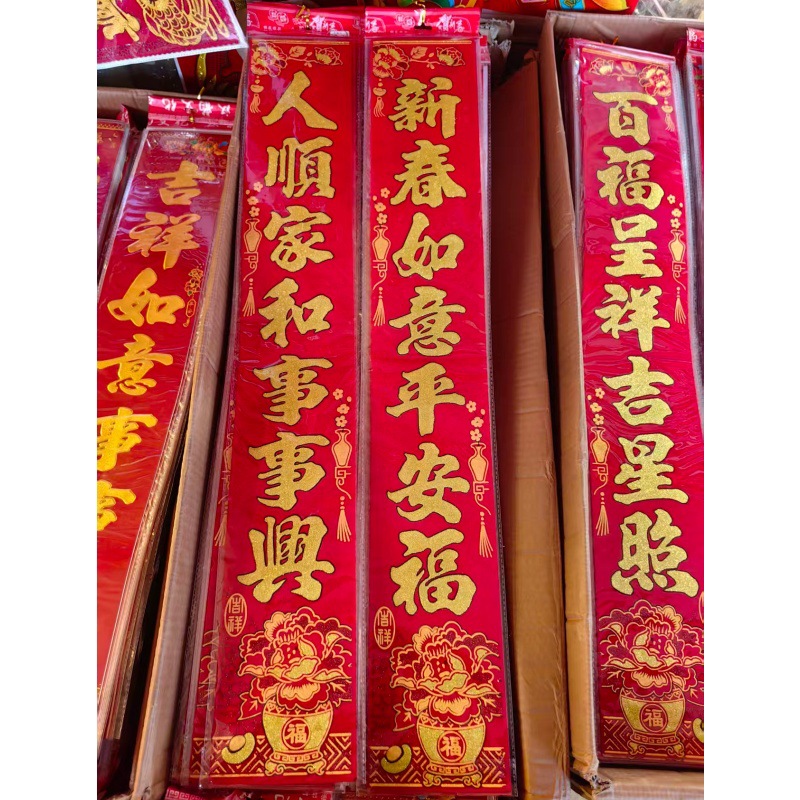 吉祥如意事事
人順家和事事興
吉祥
福
新春如意平安福
吉祥
福
百福呈祥吉星照
福